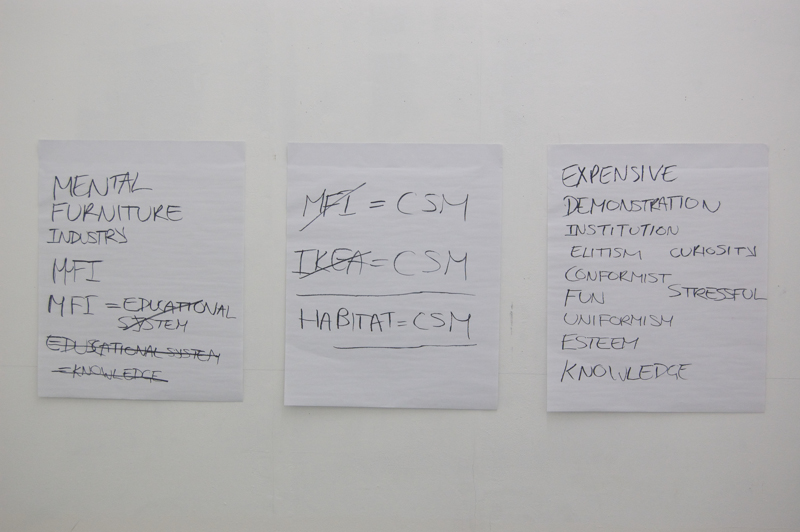 MENTAL
FURNITURE
INDUSTRY
MFI
MFI = EDUCATIONAL
SYSTEM
EDUCATIONAL SYSTEM
= KNOWLEDGE
MFI = CSM
IKEA = CSM
HABITAT = CSM
EXPENSIVE
DEMONSTRATION
INSTITUTION
ELITISM CURIOSITY
CONFORMIST
FUN STRESSFUL
UNIFORMISM
ESTEEM
KNOWLEDGE